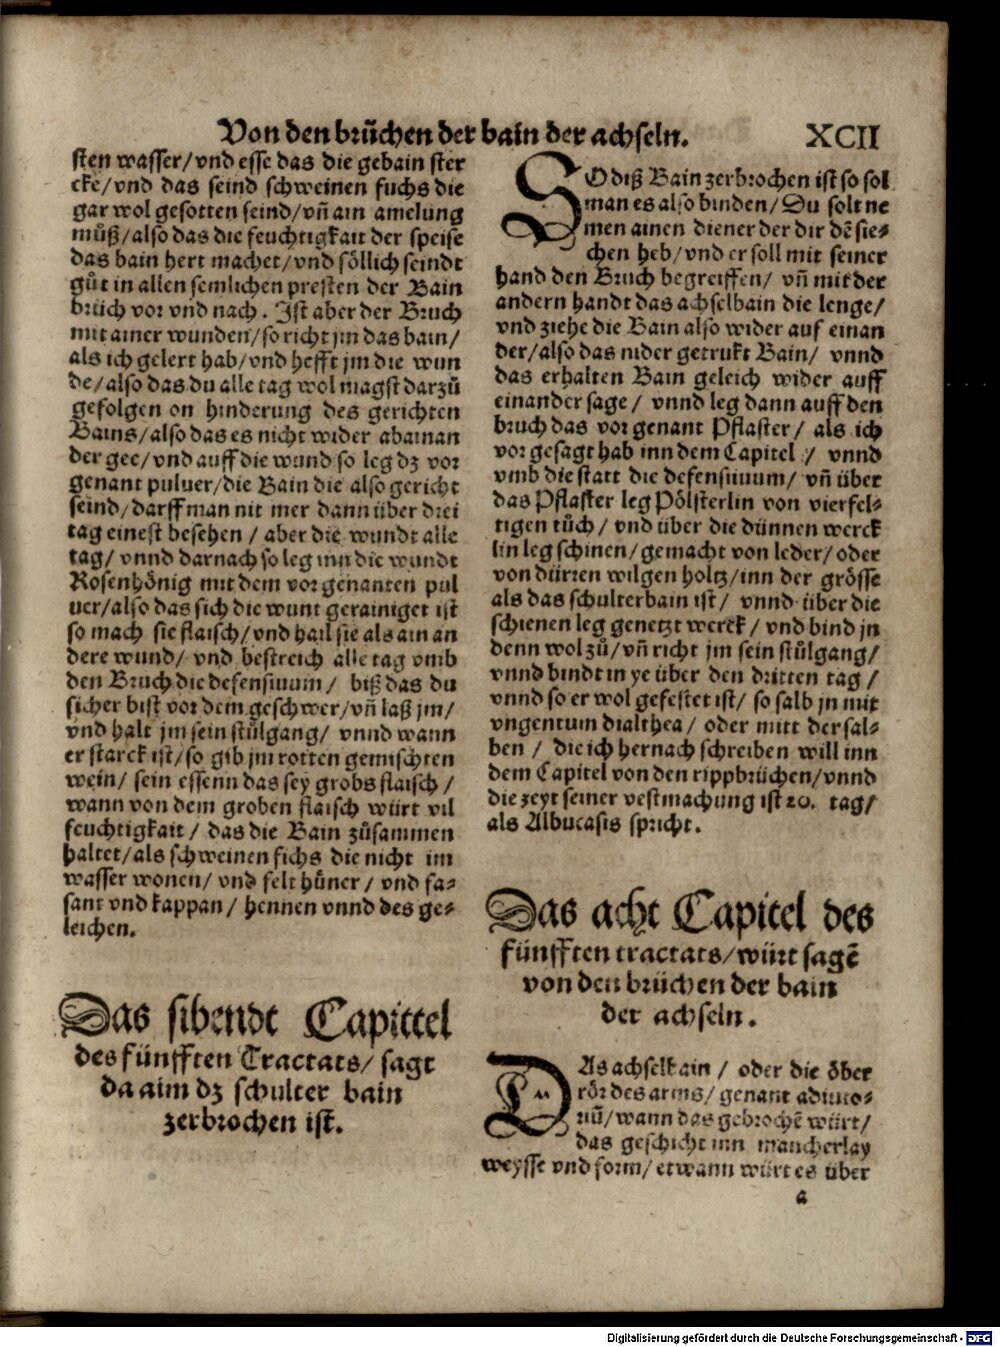 Von den brüchen der bain der achseln. XCII
sten wasser/vnd esse das die gebain ster
cke/vnd das seind schweinen fuchs die
gar wol gesotten seind/vñ ain amelung
můß/also das die feuchtigkait der speise
das bain hert machet/vnd söllich seindt
gůt in allen semlichen presten der Bain
brüch vor vnd nach. Ist aber der Bruch
mit ainer wunden/so richt jm das bain/
als ich gelert hab/vnd hefft jm die wun
de/also das du alle tag wol magst darzů
gefolgen on hinderung des gerichten
Bains/also das es nicht wider abainan
der gee/vnd auff die wund so leg dz vor
genant puluer/die Bain die also gericht
seind/darff man nit mer dann über drei
tag einest besehen / aber die wundt alle
tag/ vnnd darnach so leg inn die wundt
Rosenhönig mit dem vorgenanten pul
uer/also das sich die wunt gerainiget ist
so mach sie flaisch/vnd hail sie als ain an
dere wund/ vnd bestreich alle tag vmb
den Bruch die defensiuum / biß das du
sicher bist vor dem geschwer/vñ laß jm/
vnd halt jm sein stůlgang/ vnnd wann
er starck ist/so gib jm rotten gemischten
wein/ sein essenn das sey grobs flaisch /
wann von dem groben flaisch würt vil
feuchtigkait / das die Bain zůsammen
haltet/als schweinen fichs die nicht im
wasser wonen/ vnd felt hůner / vnd fa⸗
sant vnd kappan / hennen vnnd des ge⸗
leichen.
Das sibendt Capittel
des fünfften Tractats/ sagt
da aim dz schulter bain
zerbrochen ist.
SO diß Bain zerbrochen ist so sol
man es also binden/Du solt ne
men ainen diener der dir dẽ sie⸗
chen heb/vnd er soll mit seiner
hand den Bruch begreiffen/ vñ mit der
andern handt das achselbain die lenge/
vnd ziehe die Bain also wider auf einan
der/also das nider getrukt Bain/ vnnd
das erhalten Bain geleich wider auff
einander sage / vnnd leg dann auff den
bruch das vor genant Pflaster / als ich
vor gesagt hab inn dem Capitel / vnnd
vmb die statt die defensiuum/ vñ über
das Pflaster leg Pölsterlin von vierfel⸗
tigen tůch / vnd über die dünnen werck
lin leg schinen/gemacht von leder/oder
von dürren wilgen holtz/inn der grösse
als das schulterbain ist/ vnnd über die
schienen leg genetzt werck / vnd bind jn
denn wol zů/vñ richt jm sein stůlgang/
vnnd bindt in ye über den dritten tag /
vnnd so er wol gefestet ist/ so salb jn mit
vngentum dialthea / oder mitt der sal⸗
ben / die ich hernach schreiben will inn
dem Capitel von den rippbrüchen/vnnd
die zeyt seiner vestmachung ist 20. tag/
als Albucasis spricht.
Das acht Capitel des
fünfften tractats/würt sagẽ
von den brüchen der bain
der achseln.
DAs achselbain / oder die öber
rör des arms/ genant adiuto⸗
riũ/wann das gebrochẽ würt/
das geschicht inn mancherlay
weysse vnd form/ etwann würt es über
a
Digitalisierung gefördert durch die Deutsche Forschungsgemeinschaft - DFG